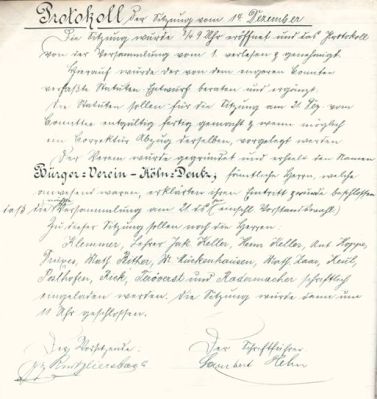 Protokoll der Sitzung vom 14 Dezember
Die Sitzung wurde 3/4 9 Uhr eröffnet und das Protokoll
von der Versammlung vom 1. verlesen & genehmigt.
Hierauf wurde der von dem engeren Comitee
verfaßte Statuten Entwurf beraten und ergänzt.
Die Statuten sollen für die Sitzung am 21. Dez. vom
Comittee entgültig fertig gemacht & wenn möglich
ein Correktur Abzug derselben, vorgelegt werden
Der Verein wurde gegründet und erhält den Namen
Bürger=Verein-Köln=Deutz, sämtliche Herrn, welche
anwesend waren, erklärten ihren Eintritt & wurde beschlossen
daß die Versammlung am 21
Zu dieser Sitzung sollen noch die Herren:
Klemmer, Lehrer Jak. Heller, Herm Heller, Ant Hoppe,
Math Rother, W. Lückenhausen, Math. Haas,
Posthofen, und Radermacher schriftlich
eingeladen werden. Die Sitzung wurde dann um
11 Uhr geschlossen.
Der Vorsitzende: Der Schriftführer
Lambert Hehn